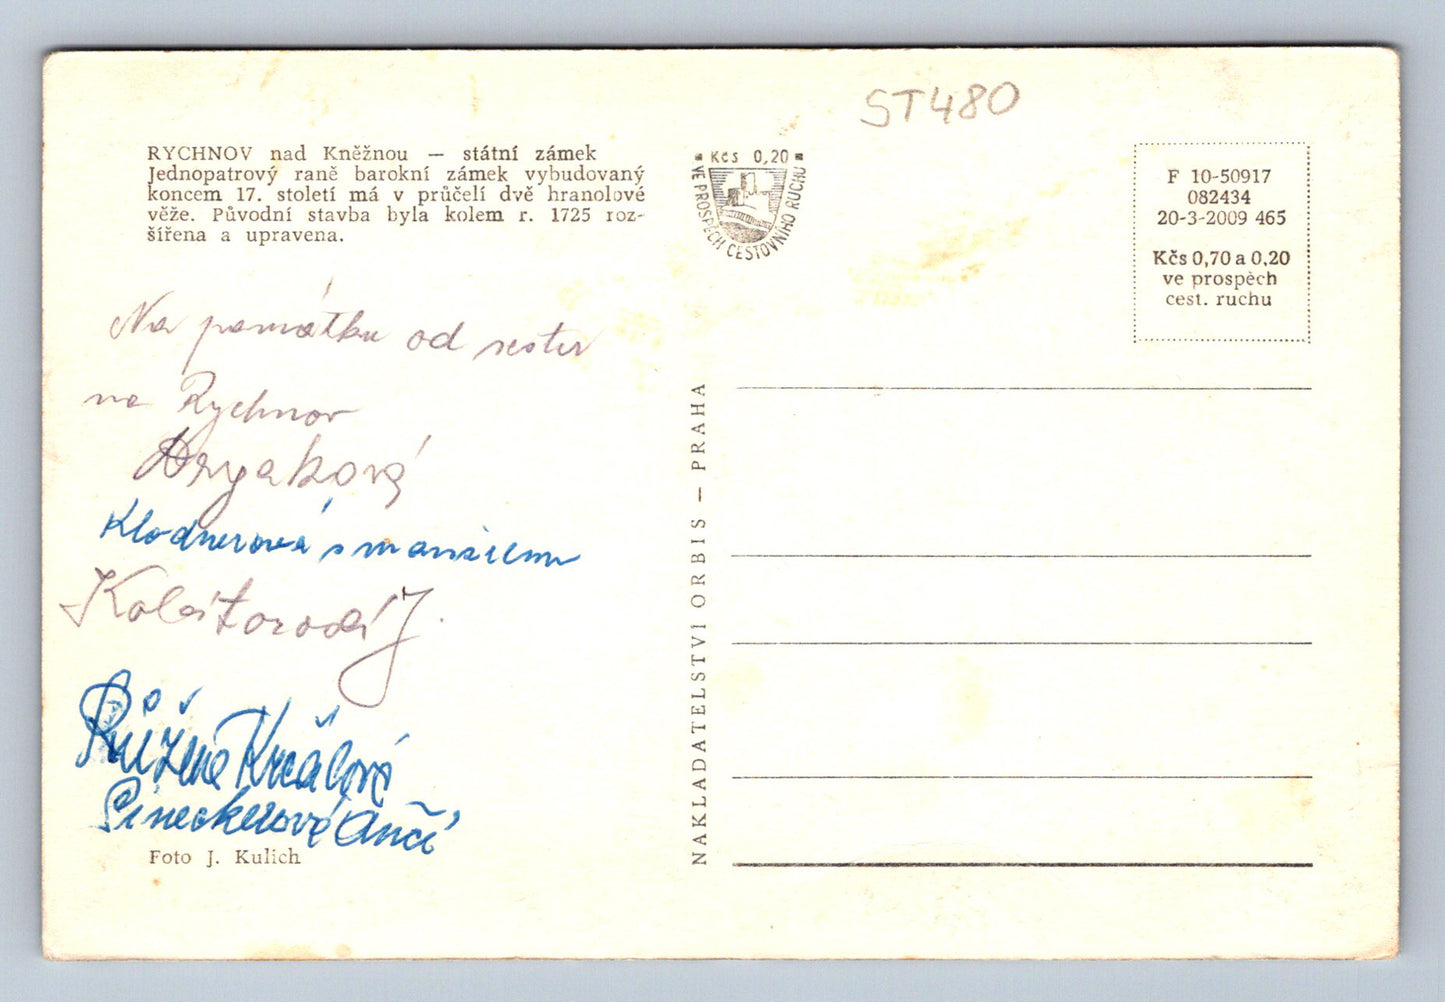 ST480
RYCHNOV nad Kněžnou — státní zámek
Jednopatrový raně barokní zámek vybudovaný
koncem 17. století má v průčelí dvě hranolové
věže. Původní stavba byla kolem r. 1725 roz-
šířena a upravena.
Kčs 0,20
VE PROSPĚCH CESTOVNÍHO RUCHU
F 10-50917
082434
20-3-2009 465
Kčs 0,70 a 0,20
ve prospěch
cest. ruchu
Na památku od sester
na Rychnov
Klodnerová s manželem
J.
Růžena Krčálová
Sineckerová Anči
Foto J. Kulich
NAKLADATELSTVI ORBIS — PRAHA